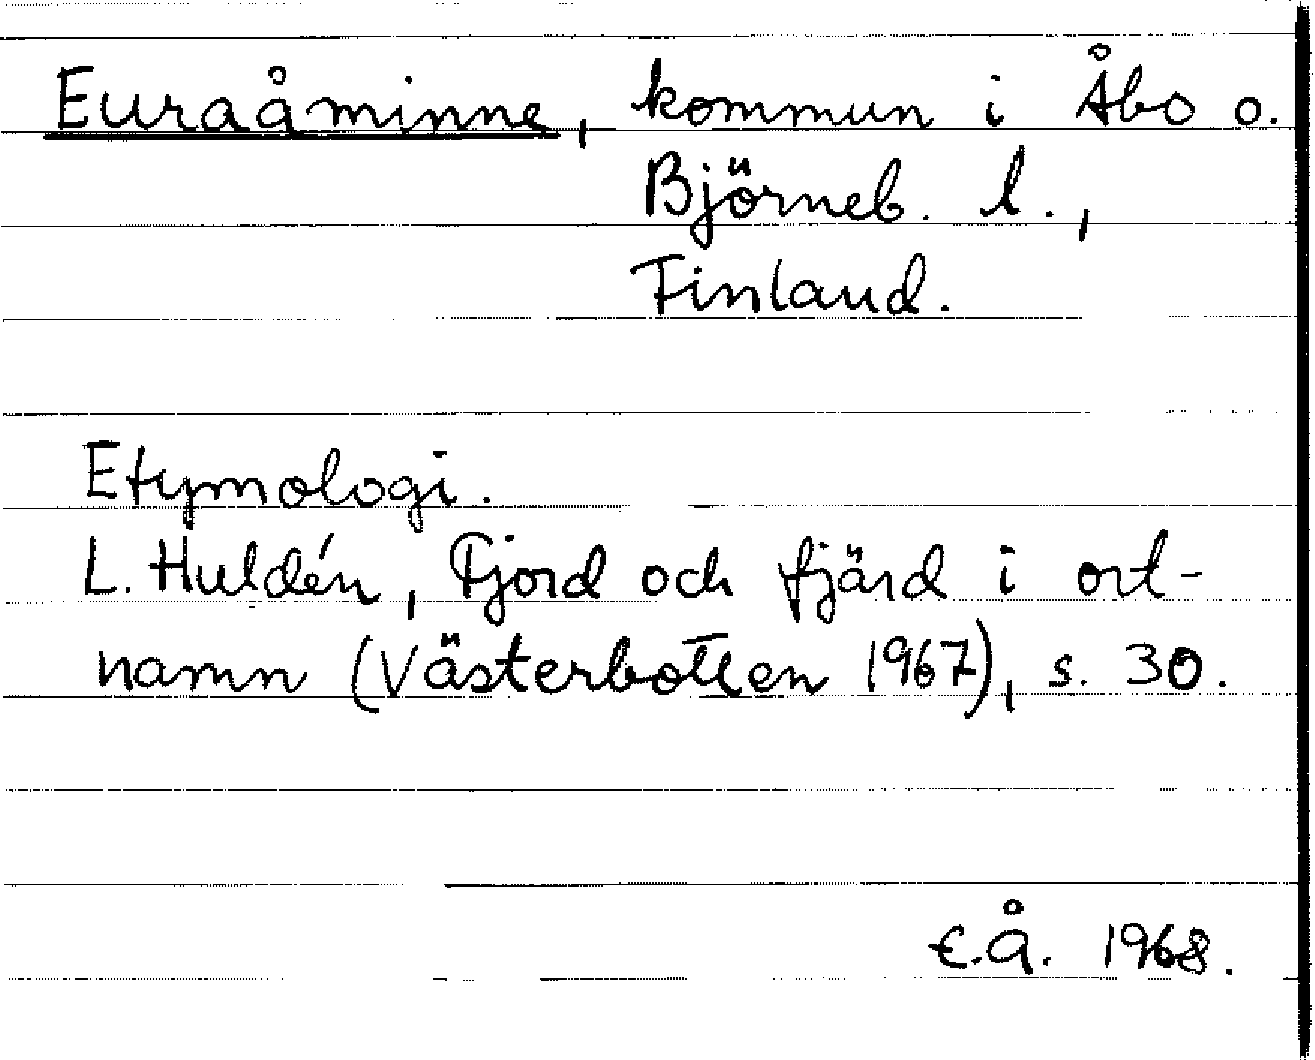 Euraåminne, kommun i Åbo o.
Björneb. l.,
Finland.
Etymologi.
L. Huldén, Fjord och fjärd i ort-
namn (Västerbotten 1967), s. 30.
E.Å. 1968.